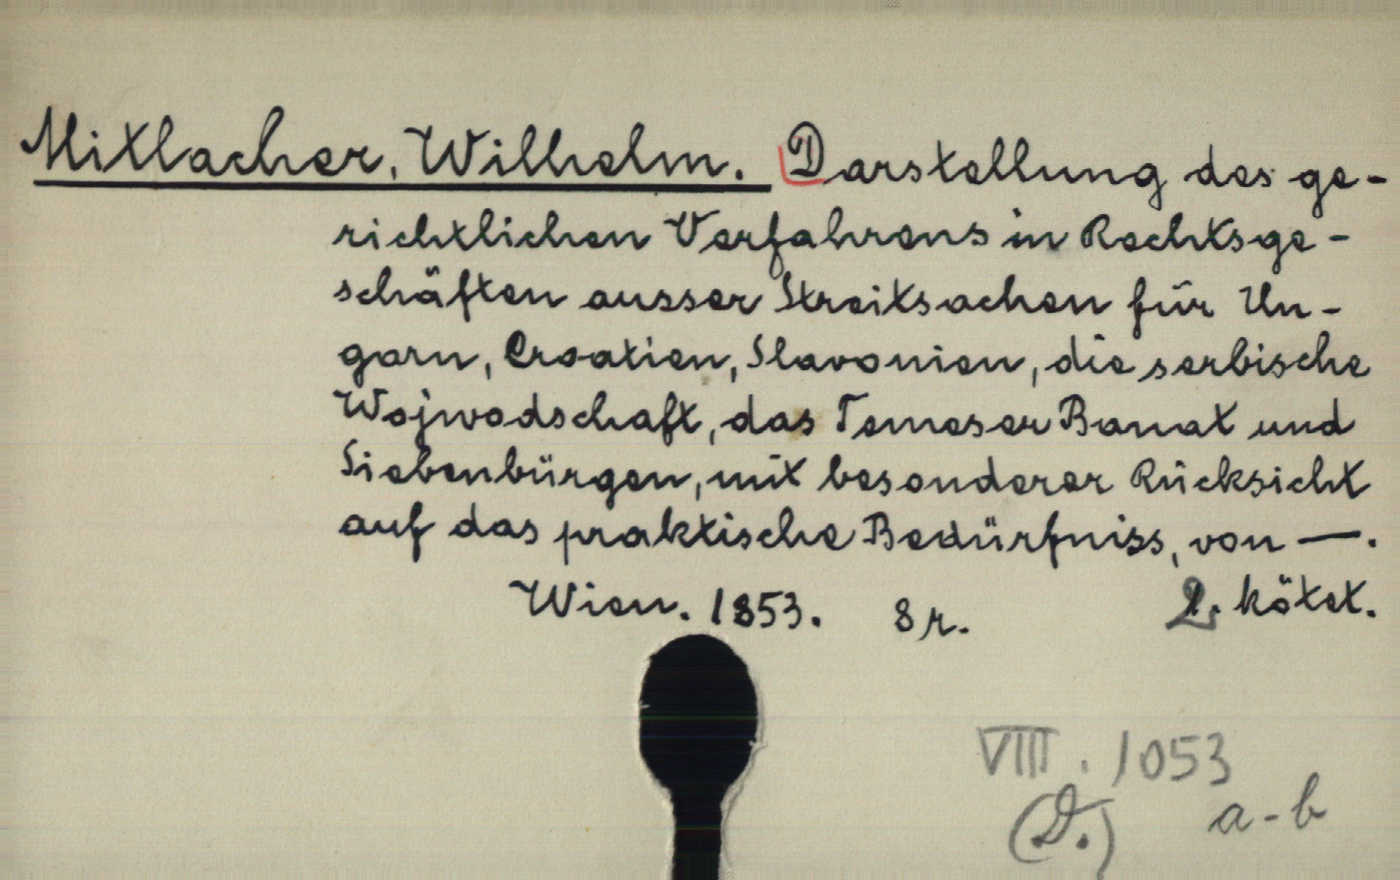 Mitlacher, Wilhelm. Darstellung des ge-
richtlichen Verfahrens in Rechtsge-
schäften ausser Streitsachen für Un-
garn, Croatien, Slavonien, die serbische
Wojwodschaft, das Temeser Banat und
Siebenbürgen, mit besonderer Rücksicht
auf das praktische Bedürfniss, von —.
Wien. 1853. 8 r. 2. kötet.
VIII. 1053
(D.) a-b